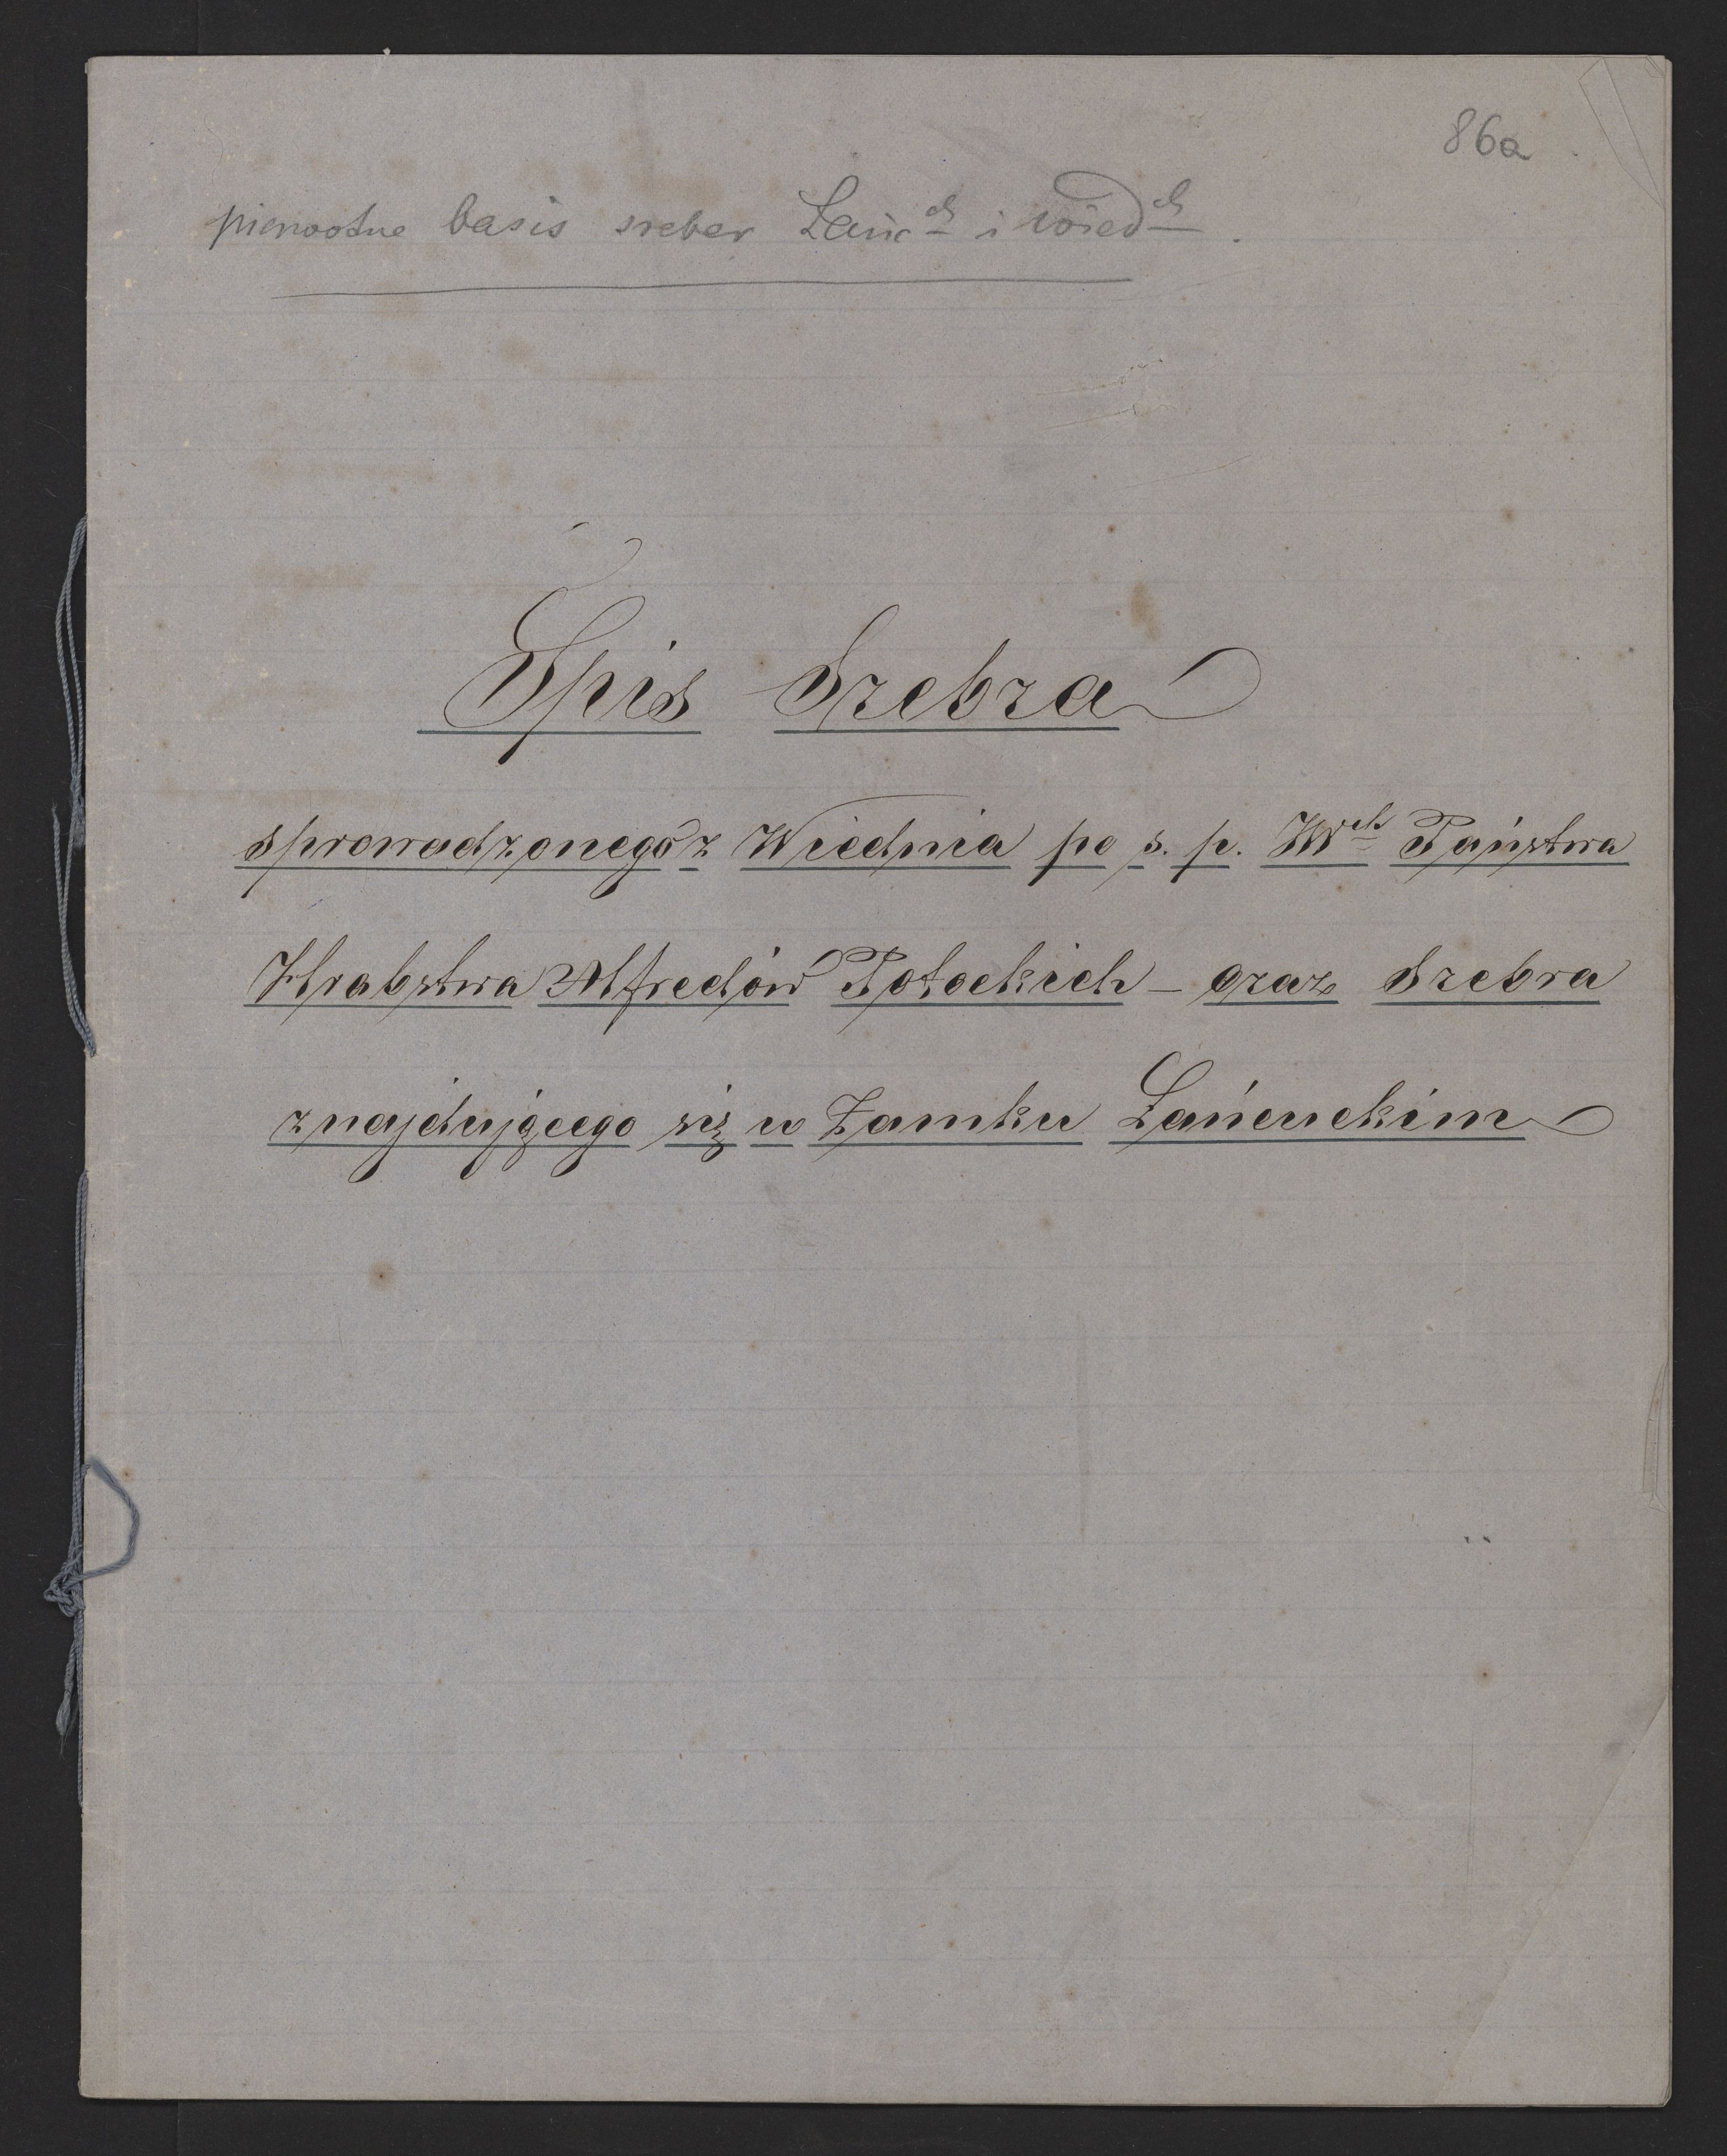 86a
pierwotne basis sreber Łańc^ch i Wied^ch.
Spis Srebra
sprowadzonego z Wiednia po s. p. JW^ch Państwa
Hrabstwa Alfredów Potockich – oraz Srebra
znajdującego się w Zamku Łańcuckim